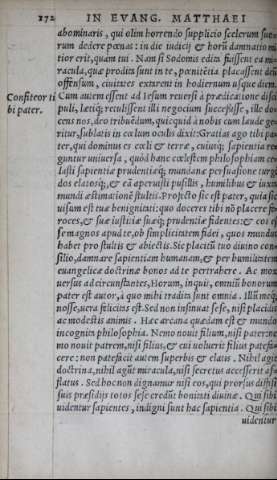 172 IN EVANG. MATTHAEI
abominaris, qui olim horrendo supplicio scelerum suo-
rum dedere pœnas: in die iudicij & horū damnatio mi
tior erit, quàm tui. Nam si Sodomis edita fuissent ea mi-
racula, quæ prodita sunt in te, pœnitētia placassent deū
offensum, ciuitates extarent in hodiernum usque diem.
Confiteor ti Cum autem essent ad Iesum reuersi à prædicatione disci
bi pater. puli, lætiq́; retulissent illi negocium successisse, ille do-
cens nos, deo tribuēdum, quicquid à nobis cum laude ge-
ritur, sublatis in cœlum oculis dixit: Gratias ago tibi pa-
ter, qui dominus es cœli & terræ, cuiusq́; sapientia re-
guntur uniuersa, quòd hanc cœlestem philosophiam ce-
lasti sapientiæ prudentiæq́; mundanæ persuasione turgi
dos elatosq́;, & eā aperuisti pusillis, humilibus & iuxta
mundi æstimationē stultis. Profecto sic est pater, quia sic
uisum est tuæ benignitati: quo doceres tibi nō placere fe
roces, & suæ iustitiæ suæq́; prudentiæ fidentes: & eos es
se magnos apud te, ob simplicitatem fidei, quos mundus
habet pro stultis & abiectis. Sic placitū tuo diuino con-
silio, damnare sapientiam humanam, & per humilitatem
euangelicæ doctrinæ bonos ad te pertrahere. Ac mox
uersus ad circunstantes, Horum, inquit, omniū bonorum
pater est autor, à quo mihi tradita sunt omnia. Illū meq́;
nosse, uera felicitas est. Sed non insinuat sese, nisi placidis
ac modestis animis. Hæc arcana quædam est & mundo
incognita philosophia. Nemo nouit filium, nisi pater: ne
mo nouit patrem, nisi filius, & cui uoluerit filius patefa-
cere: non patefacit autem superbis & elatis. Nihil agit
doctrina, nihil agūt miracula, nisi secretus accesserit af-
flatus. Sed hoc non dignamur nisi eos, qui prorsus diffisi
suis præsidijs totos sese credūt bonitati diuinæ. Qui sibi
uidentur sapientes, indigni sunt hac sapientia. Qui sibi
uidentur